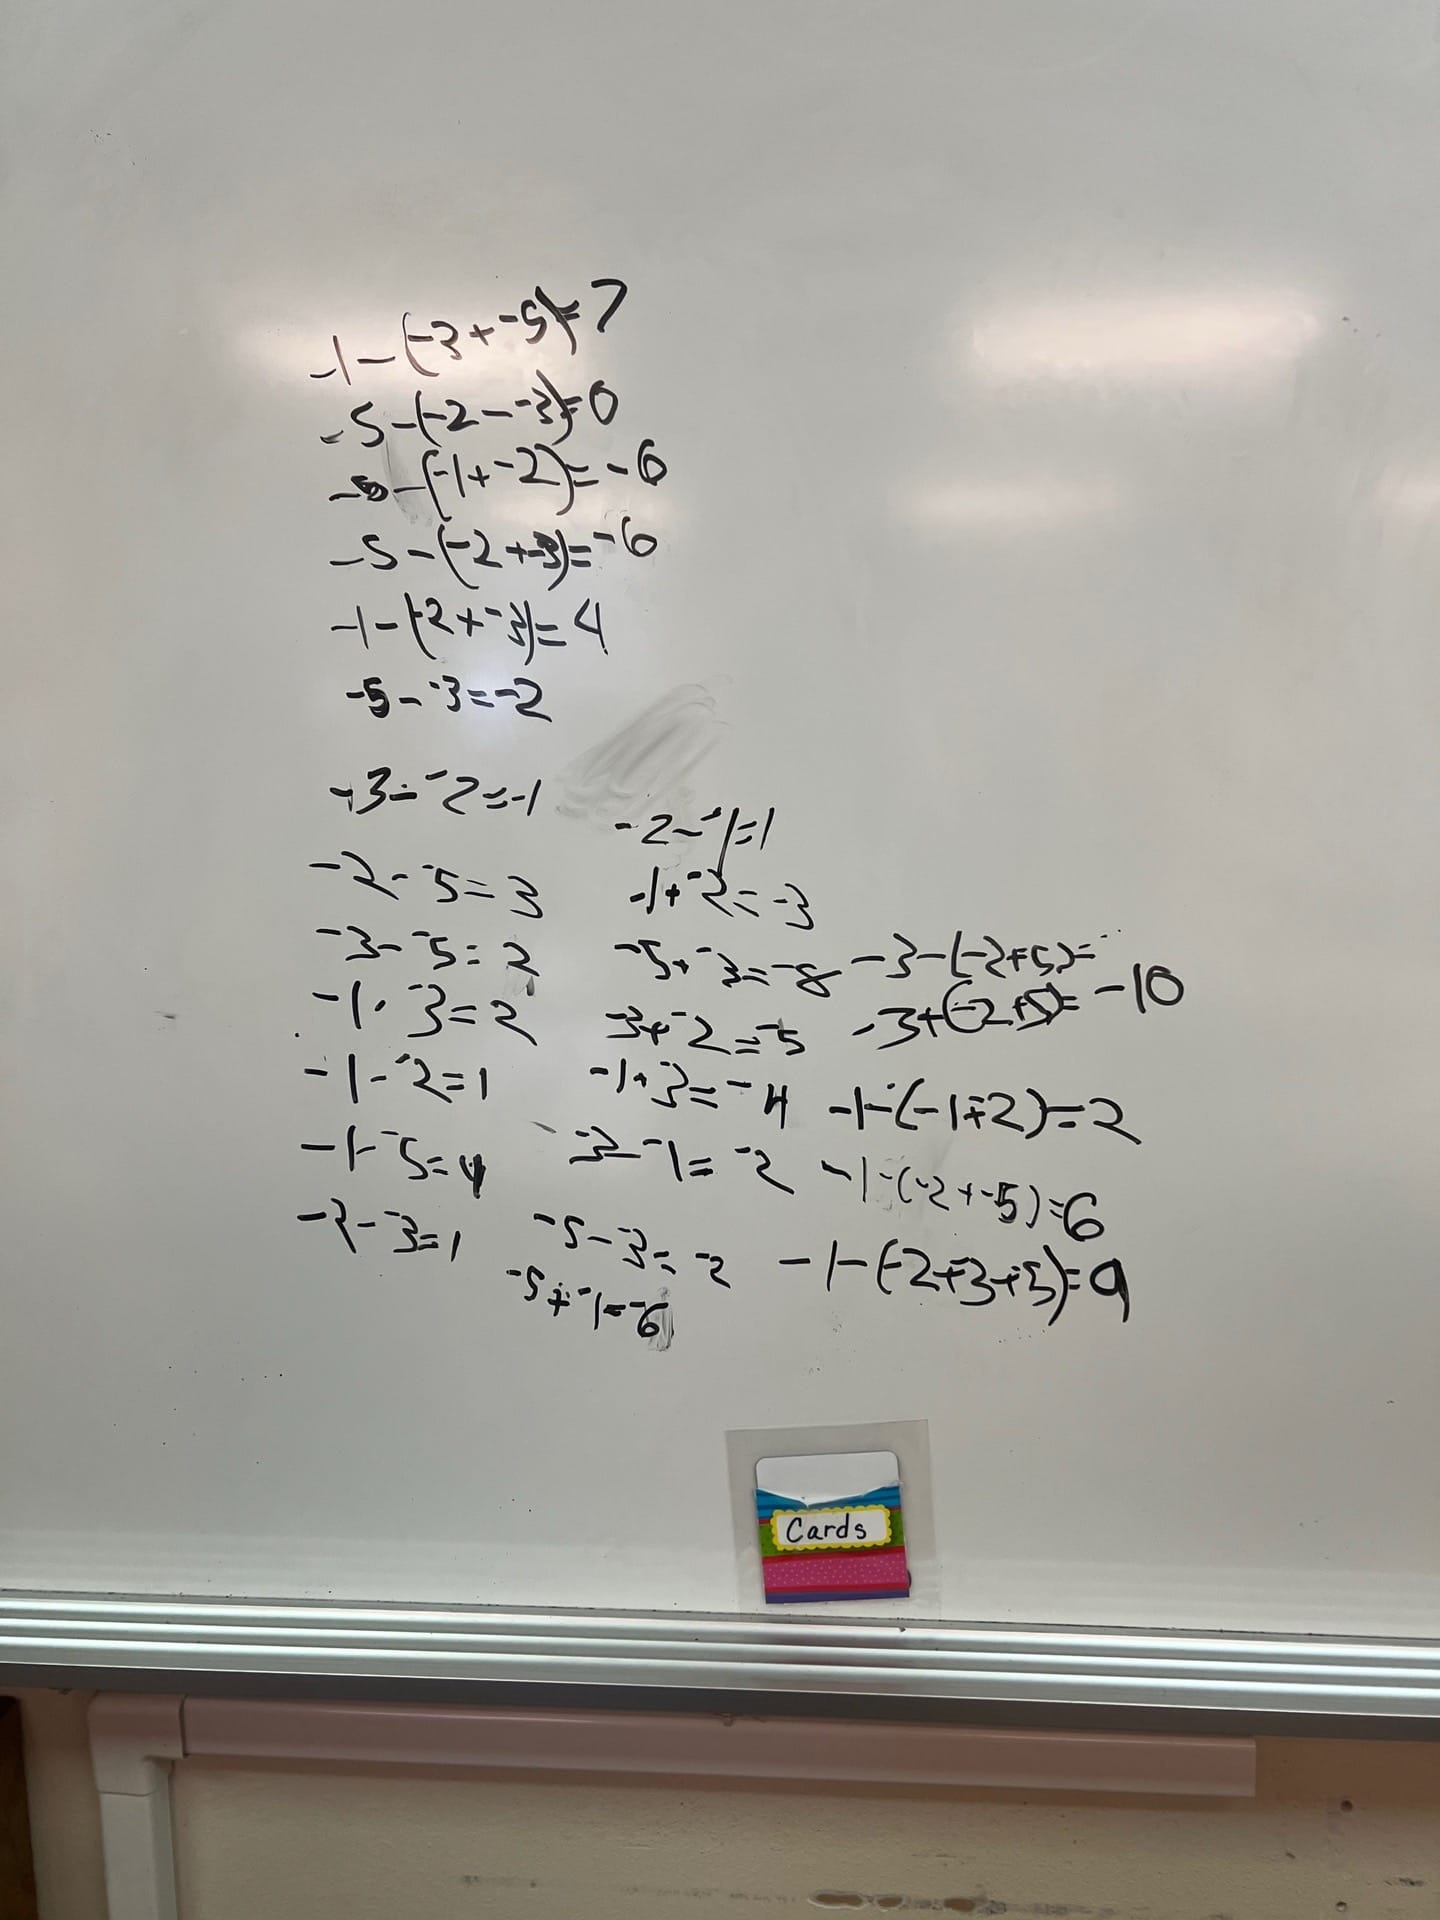 -1-(-3+-5)=7
-5-(-2--3)=0
-5-(-1+-2)=-6
-5-(-2+-3)=-6
-1-(-2+-3)=4
-5--3=-2
-3--2=-1
-2--5=3
-3--5=2
-1--3=2
-1--2=1
-1--5=4
-2--3=1
-2--1=1
-1+-2=-3
-5+-3=-8
-3+-2=-5
-1+-3=-4
-3--1=-2
-5--3=-2
-5+-1=-6
-3-(-2+5)=-
-3+(-2+-5)=-10
-1-(-1+-2)=2
-1-(-2+-5)=6
-1-(-2+-3+-5)=9
Cards